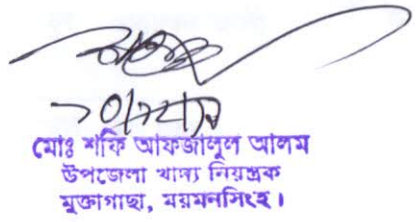 মোঃ শফি আফজালুল আলম
উপজেলা খাদ্য নিয়ন্ত্রক
মুক্তাগাছা, ময়মনসিংহ।